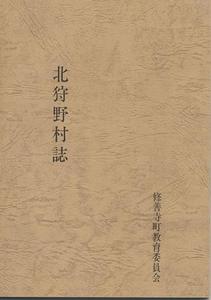 北狩野村誌
修善寺町教育委員会